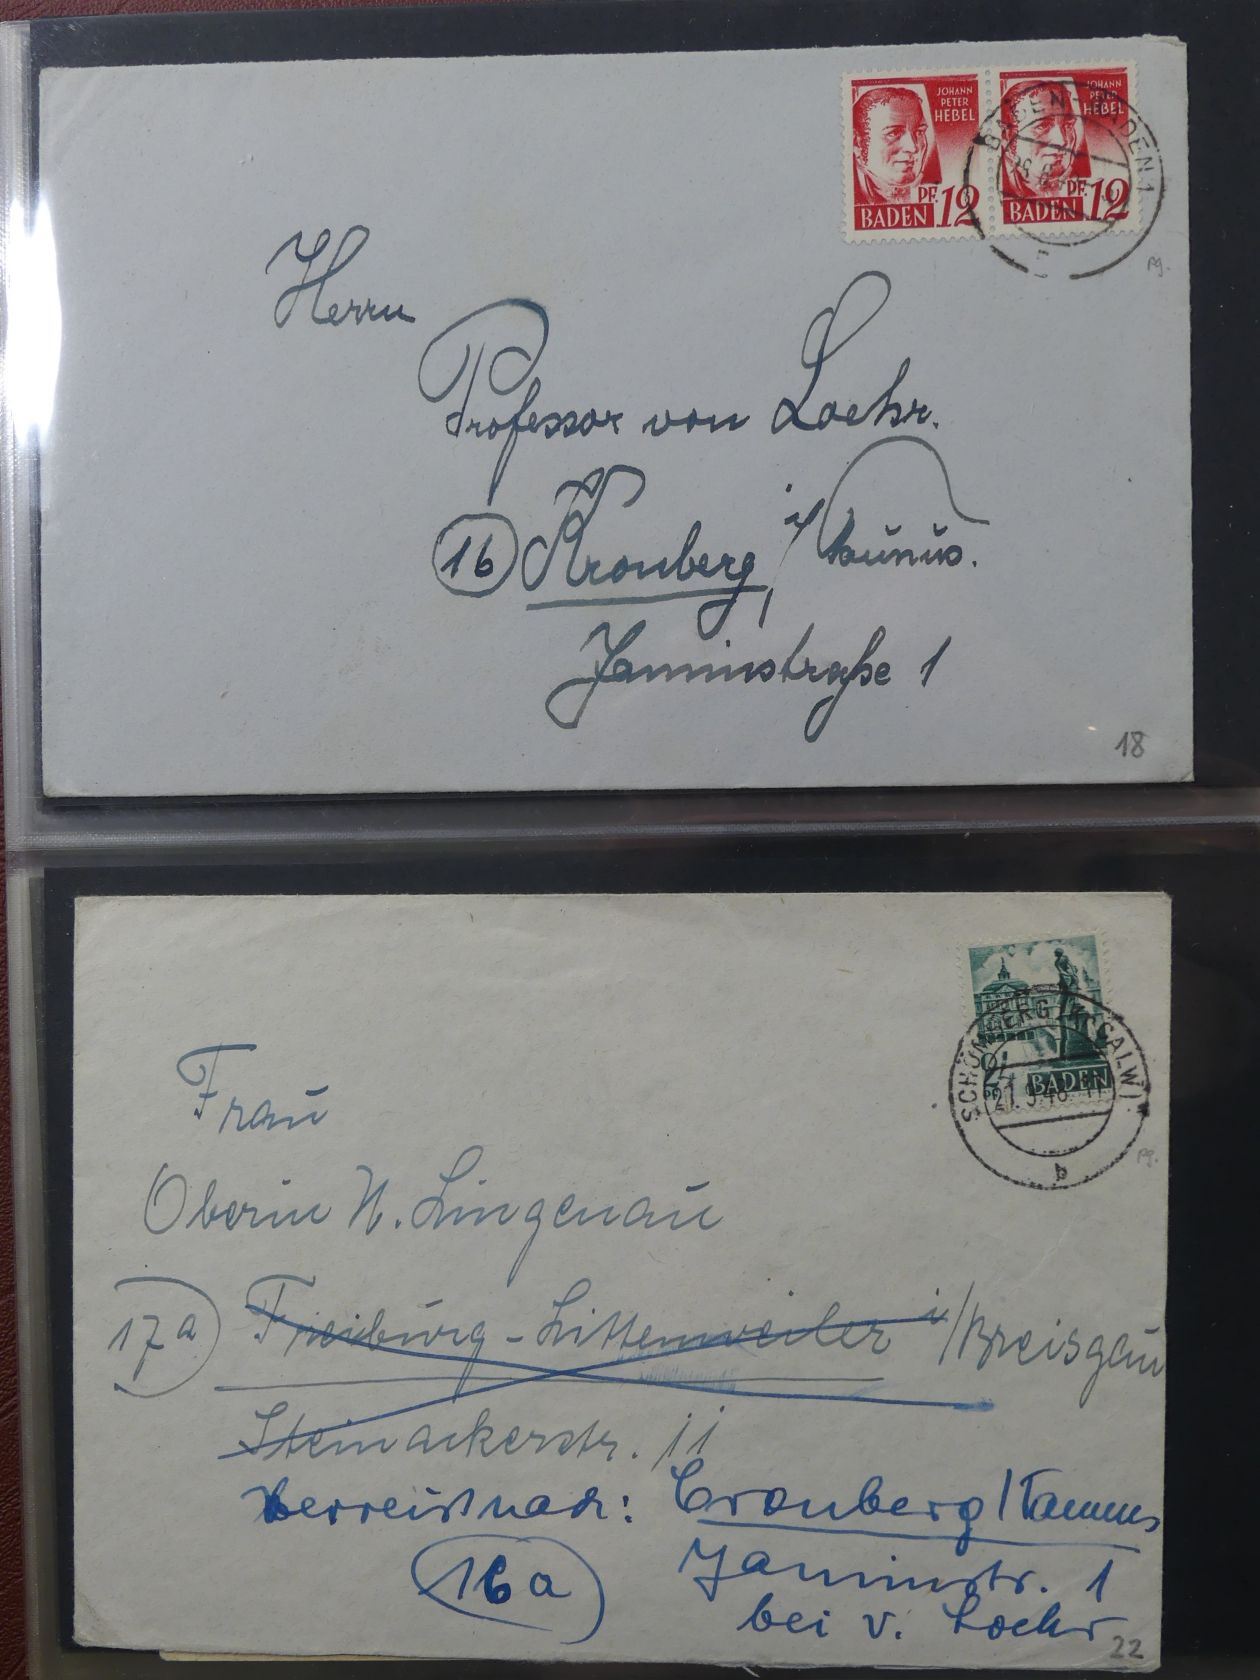 JOHANN
PETER
HEBEL
PF. 12
BADEN
JOHANN
PETER
HEBEL
PF. 12
BADEN
BADEN-BADEN 1
Herrn
Professor von Loehr.
16 Kronberg i/Taunus.
Jaminstraße 1
pg.
18
BADEN
SCHÖMBERG (KR CALW)
21.9.48-11
b
pg.
Frau
Oberin N. Lingenau
17a Freiburg-Littenweiler i/Breisgau
Steinackerstr. 11
verreist nach: Cronberg/Taunus
16a Jaminstr. 1
bei v. Loehr
22